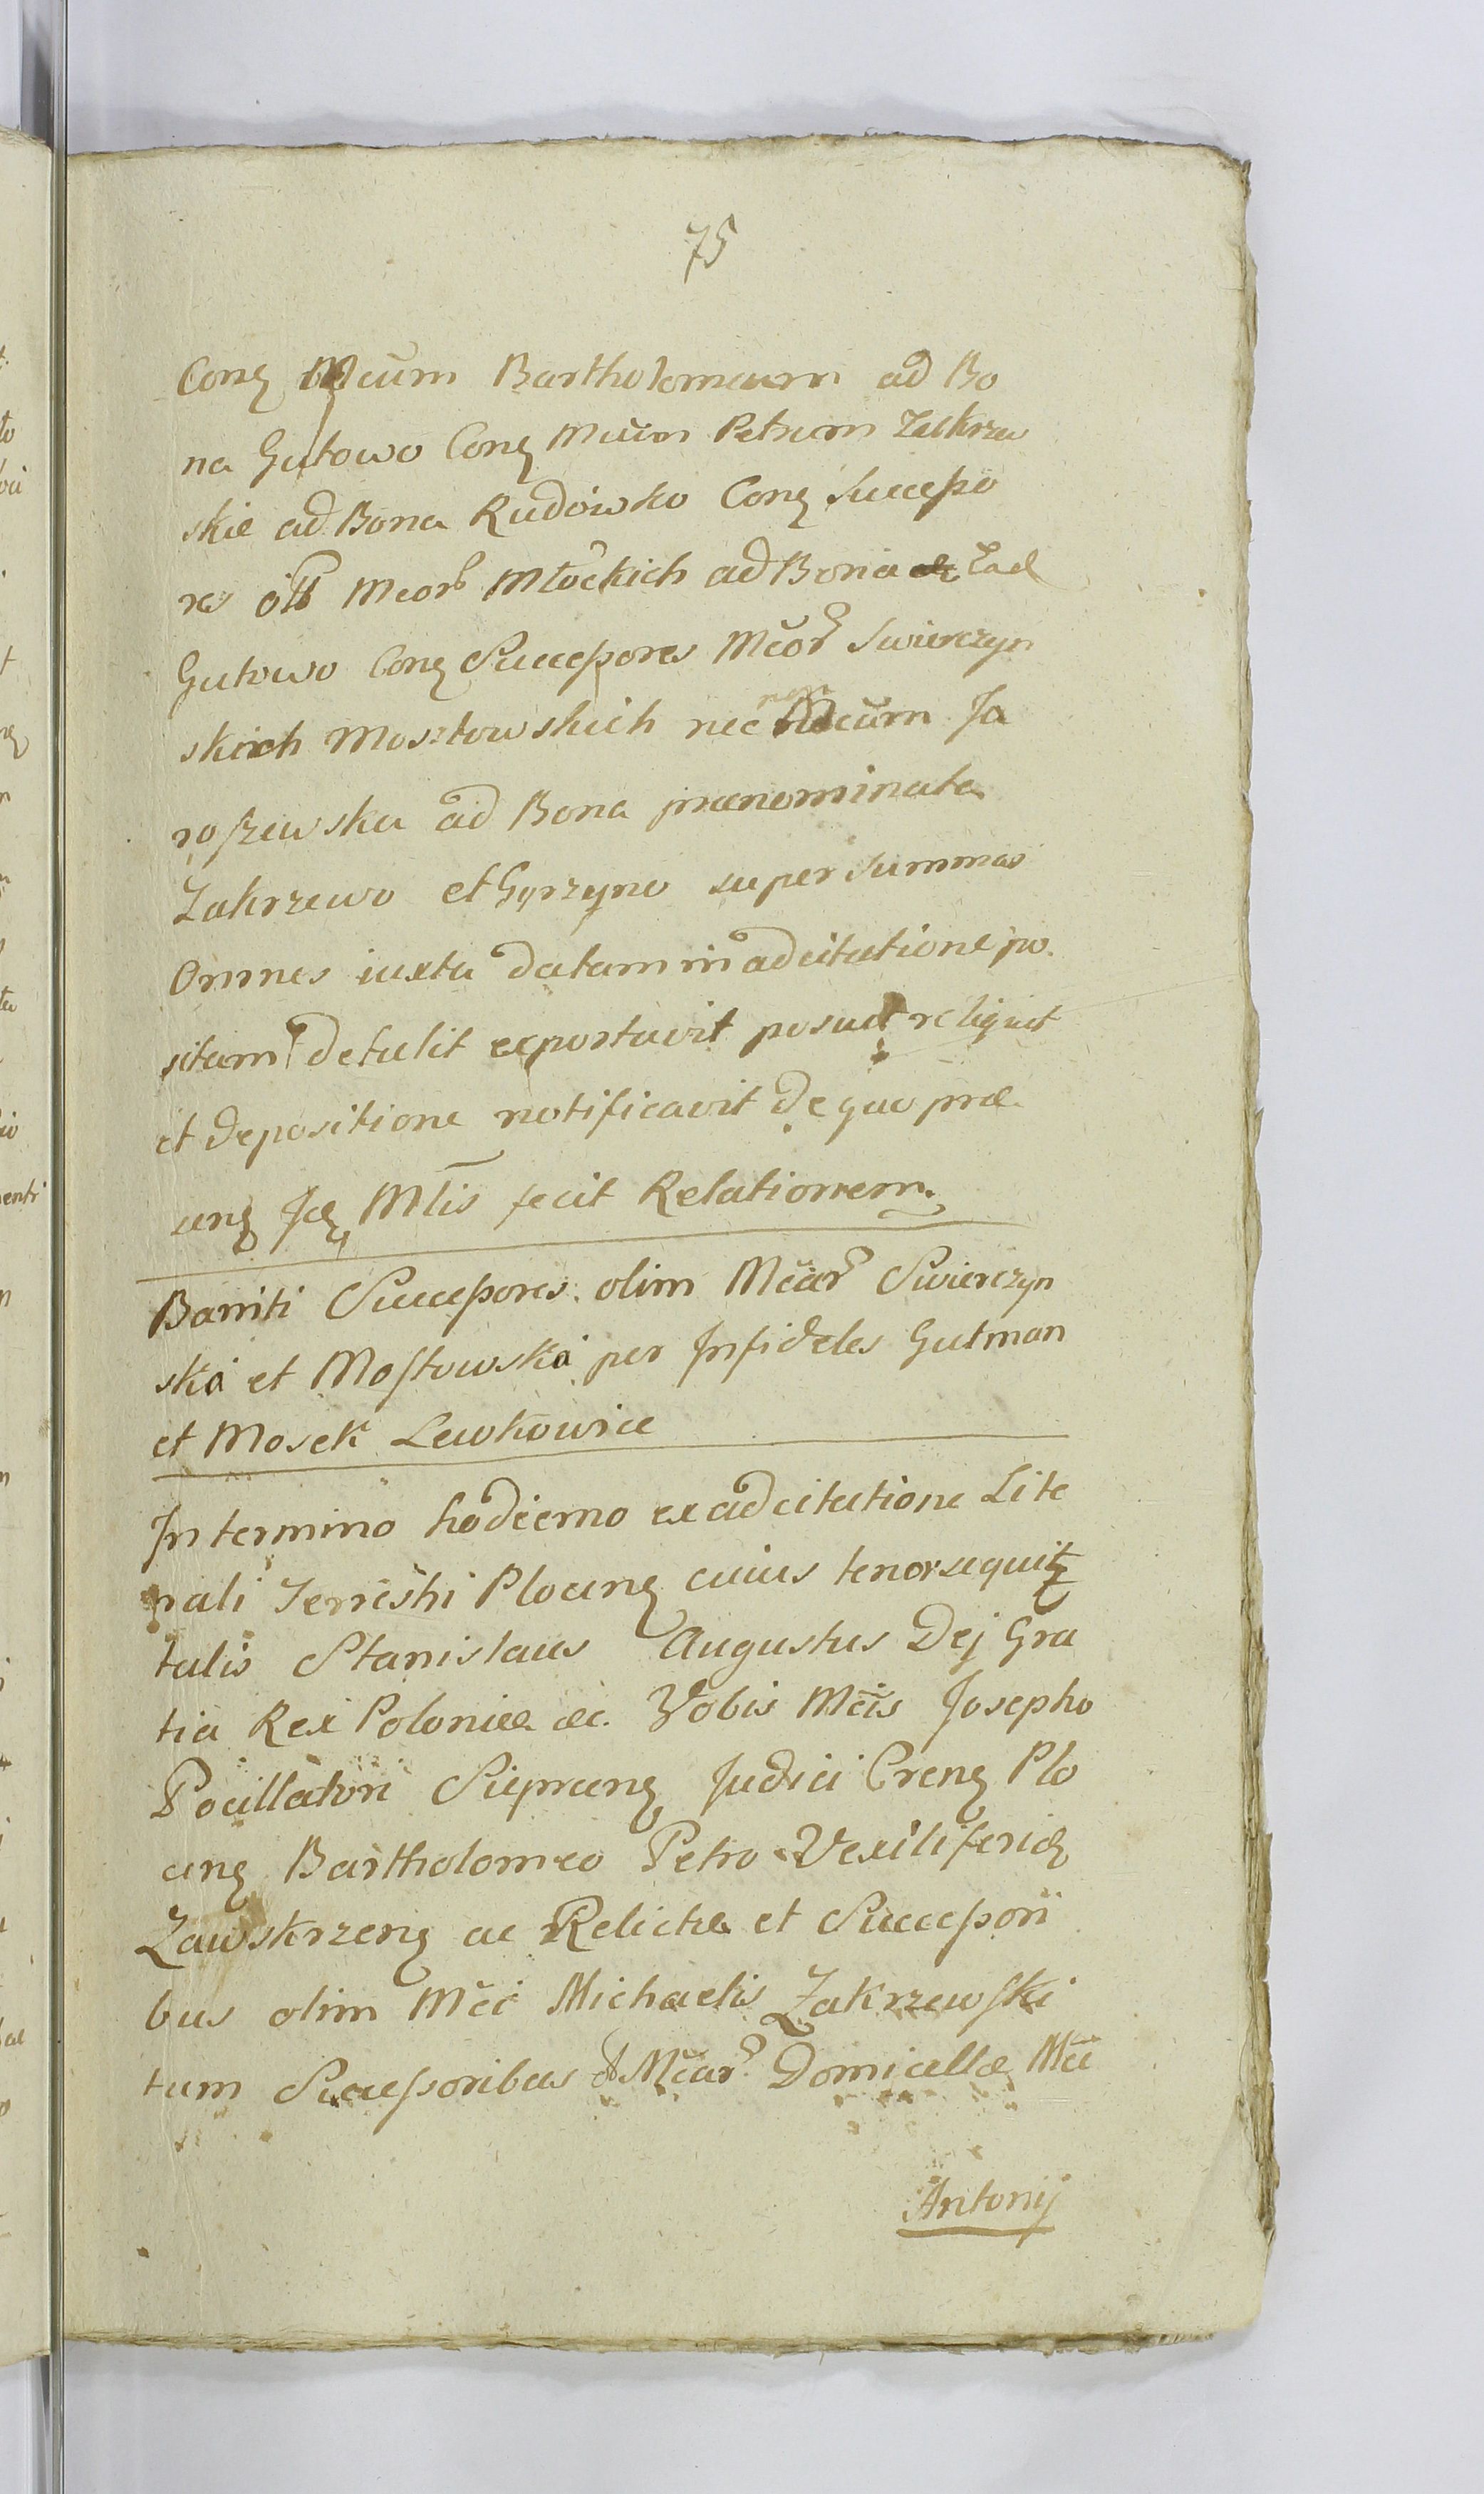 75
Conz Mcum Bartholomeum ad Bo
na Gutowo Conz Mcum Petrum Zakrzew
skie ad Bona Rudowsko Conz Successo
res Mcor Młockich ad Bona Zad
Gutowo Conz Successores Mcor Swierczyn
skich Mosztowskich nec non Mcum Ja
roszewska ad Bona praenominata
Zakrzewo et Gorzyno super Summas
Omnes iuxta datam in adcitatione po
sitam detulit exportavit posuit reliquit
et depositione notificavit de quo prae
Mtis fecit Relationem.
Banniti Successores olim Mcar Swierczyn
ska et Mostowska per Infideles Gutman
et Mosek Lewkowice
In termino hodierno ex adcitatione Lite
rali Terrestri Plocenz cuius tenor sequitz
talis Stanislaus Augustus Dej Gra
tia Rex Poloniæ &c. Vobis Mcis Josepho
Pocillatori Sieprcenz Judici Crenz Plo
cenz Bartholomeo Petro Vexiliferidz
Zawskrzenz ac Relictæ et Successori
bus olim Mci Michaelis Zakrzewski
tum Successoribus Mcar Domicellæ Mci
Antonij